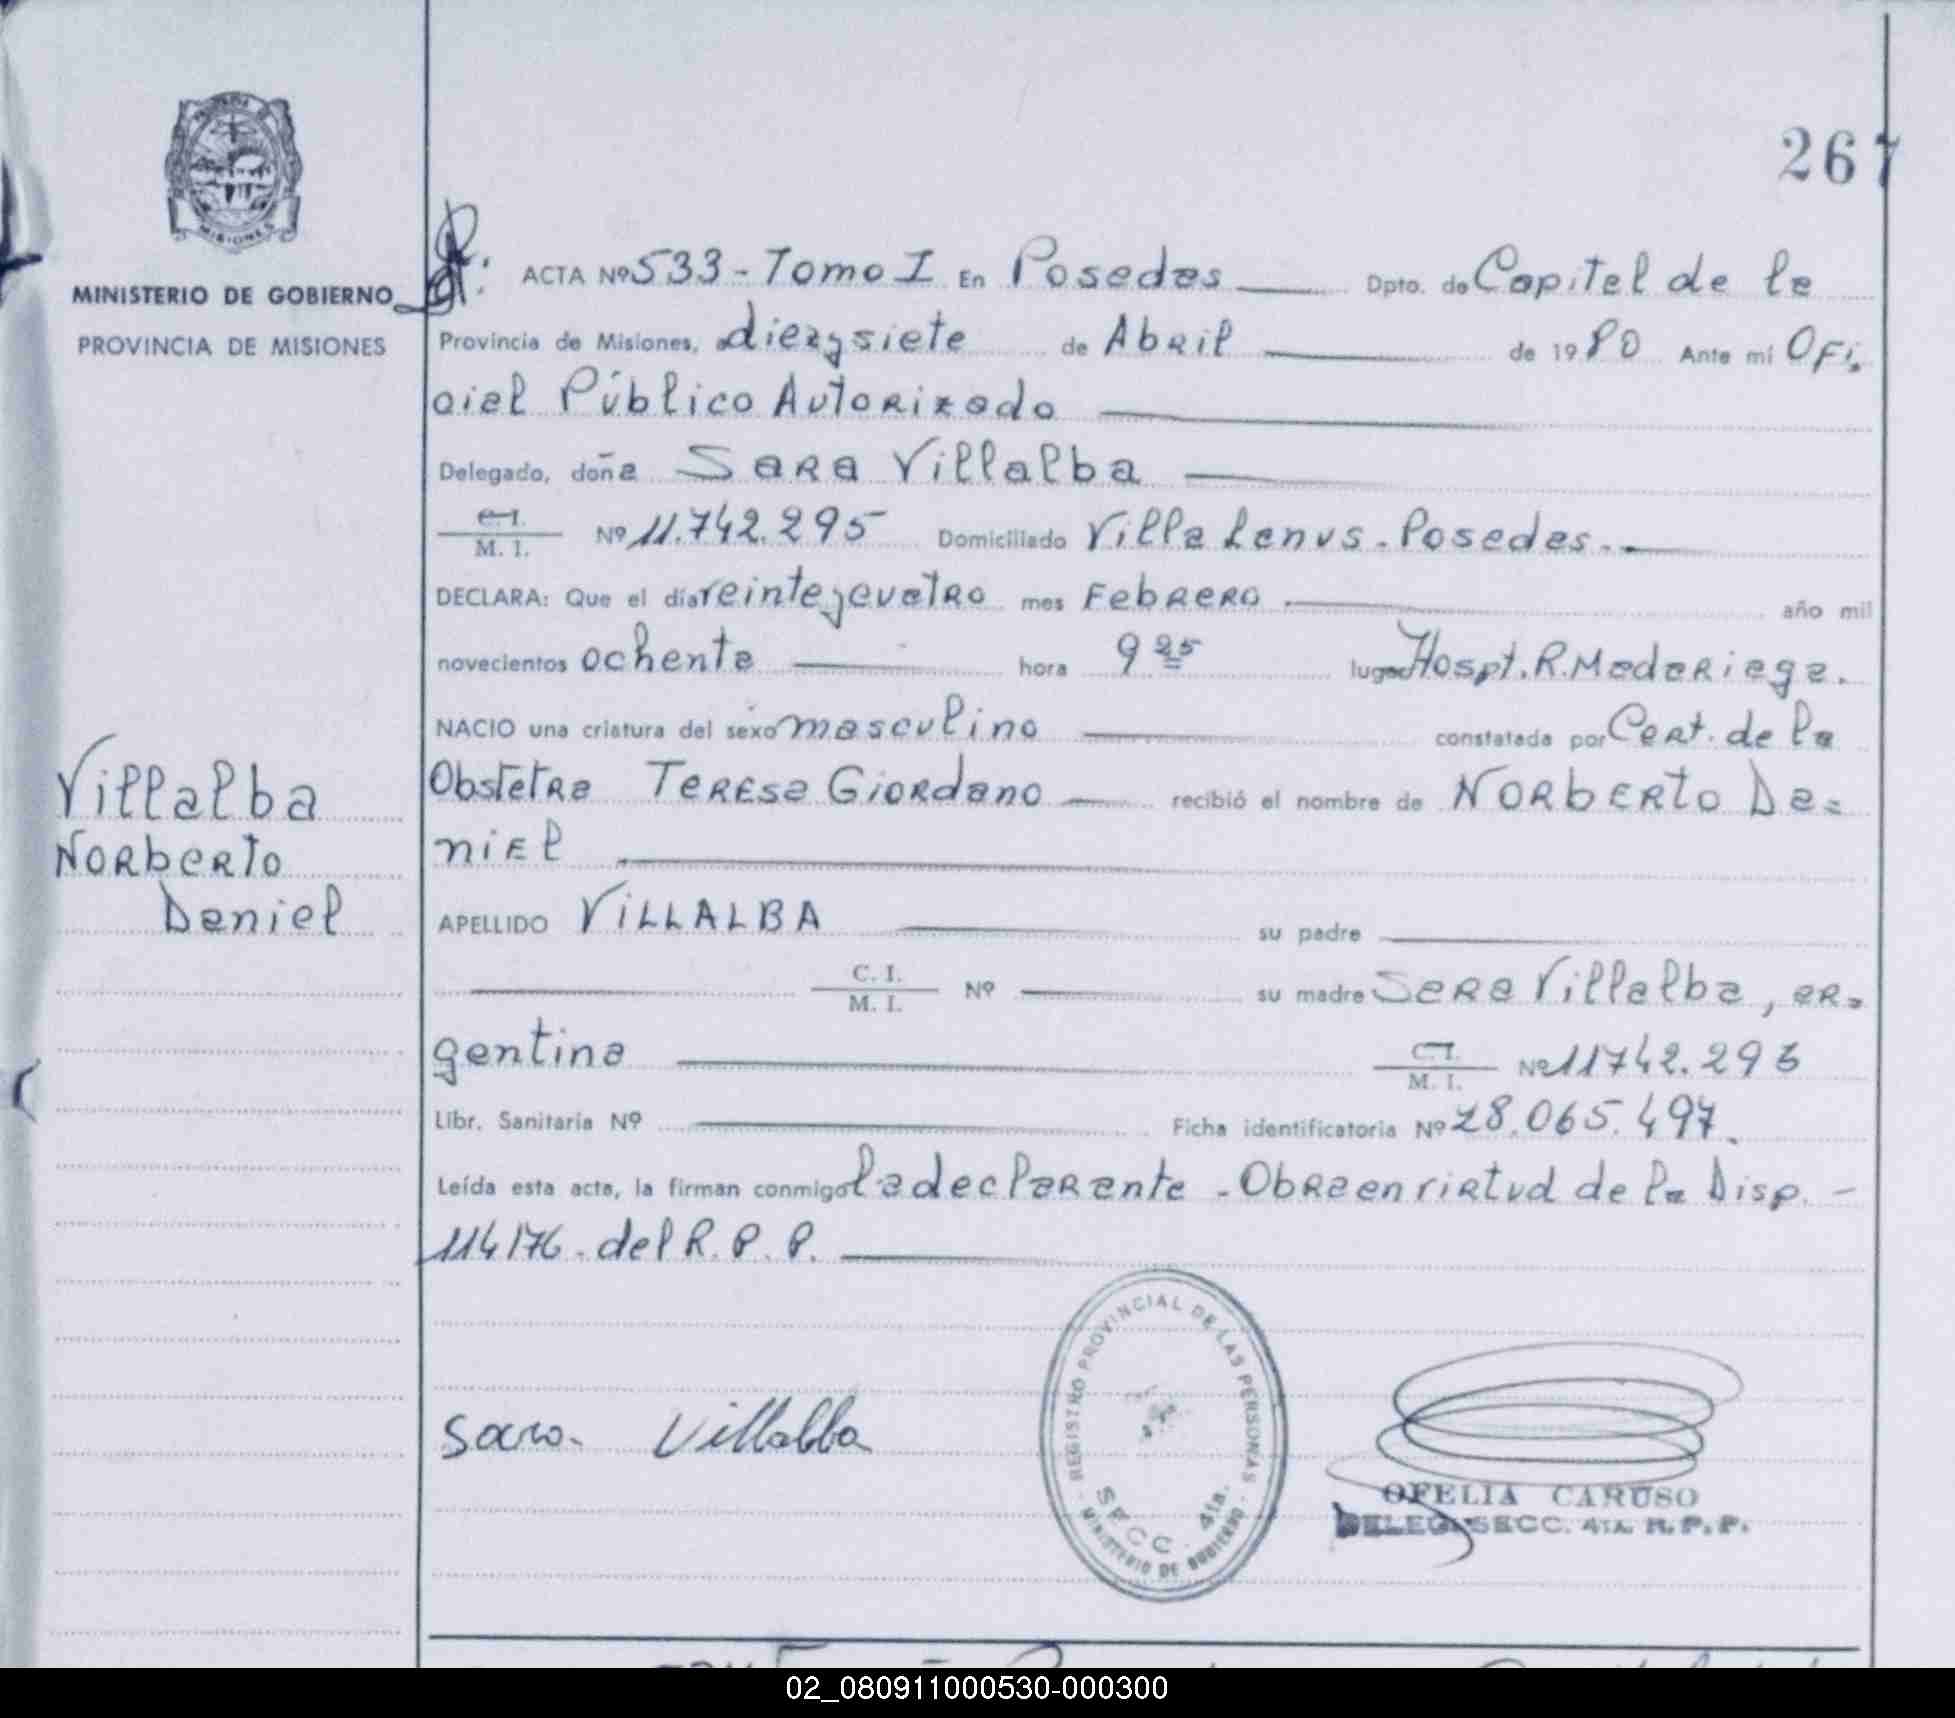 267
MINISTERIO DE GOBIERNO
PROVINCIA DE MISIONES
ACTA Nº 533 - Tomo I En Posadas Dpto. de Capital de la
Provincia de Misiones, a diezysiete de Abril de 1980 Ante mi Ofi.
cial Público Autorizado
Delegado, doña Sara Villalba
C.I.
M. I. Nº 11.742.295 Domiciliado Villa Lanus - Posadas.-
DECLARA: Que el día veinteycuatro mes Febrero año mil
novecientos ochenta hora 9 25 lugar Hospt. R. Madariaga.
NACIO una criatura del sexo masculino constatada por Cert. de la
Obstetra Teresa Giordano recibió el nombre de Norberto Da=
niel
APELLIDO VILLALBA su padre
C. I.
M. I. Nº su madre Sara Villalba, ar-
gentina C.I.
M. I. Nº 11742.295
Libr. Sanitaria Nº Ficha identificatoria Nº 28.065.497.
Leída esta acta, la firman conmigo la declarante - Obra en virtud de la Disp. -
114/76. del R. P. P.
Villalba
Norberto
Daniel
Sara Villalba
REGISTRO PROVINCIAL DE LAS PERSONAS
SECC. 4ta.
MINISTERIO DE GOBIERNO
OFELIA CARUSO
DELEG. SECC. 4TA. R. P. P.
MISIONES
02_080911000530-000300